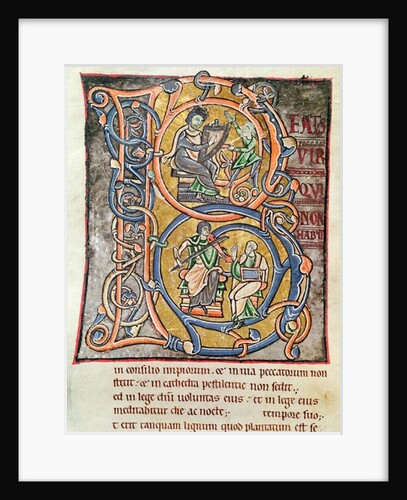 BEATS
VIR
QVI
NON
in consilio impiorum. & in uia peccatorum non
stetit: & in cathedra pestilentie non sedit.
ed in lege dñi uoluntas eius: et in lege eius
meditabitur die ac nocte; tempore suo,
t erit tanquam lignum quod plantatum est se